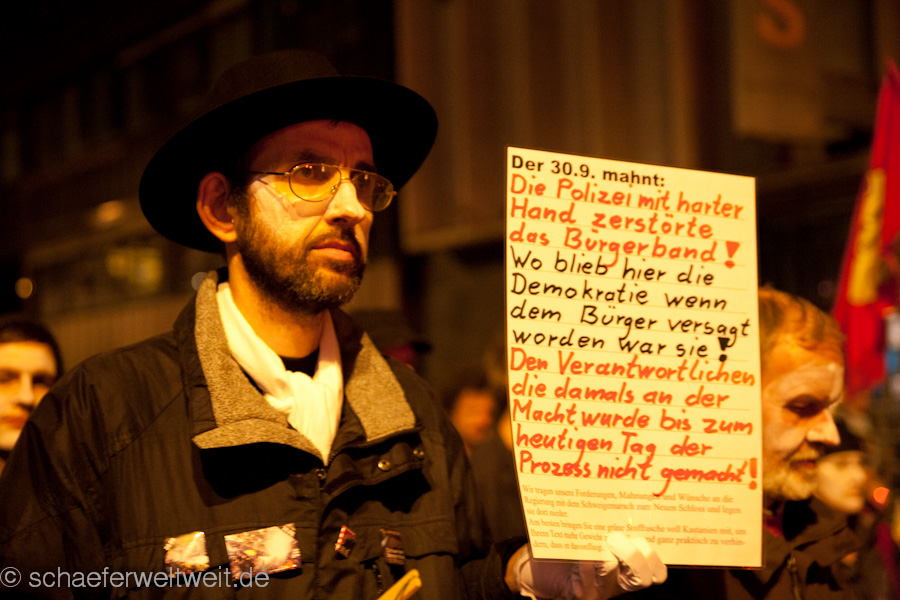 Der 30.9. mahnt:
Die Polizei mit harter
Hand zerstörte
das Bürgerband!
Wo blieb hier die
Demokratie wenn
dem Bürger versagt
worden war sie!
Den Verantwortlichen
die damals an der
Macht, wurde bis zum
heutigen Tag der
Prozess nicht gemacht!
Wir tragen unsere Forderungen, Mahnungen und Wünsche an die
Regierung mit dem Schweigemarsch zum Neuen Schloss und legen
sie dort nieder.
Am besten bringen Sie eine grüne Stofftasche voll Kastanien mit, um
Ihrem Text mehr Gewicht und ganz praktisch zu verhin-
dern, dass er davonflog.
S
© schaeferweltweit.de